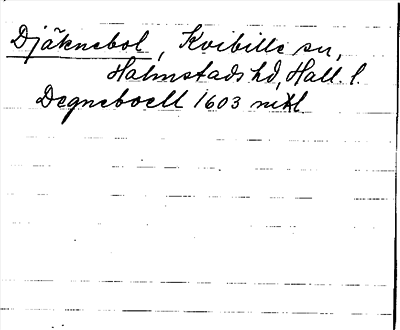 Djäknebol, Kvibille sn,
Halmstads hd, Hall. l.
Degneboell 1603 mtl